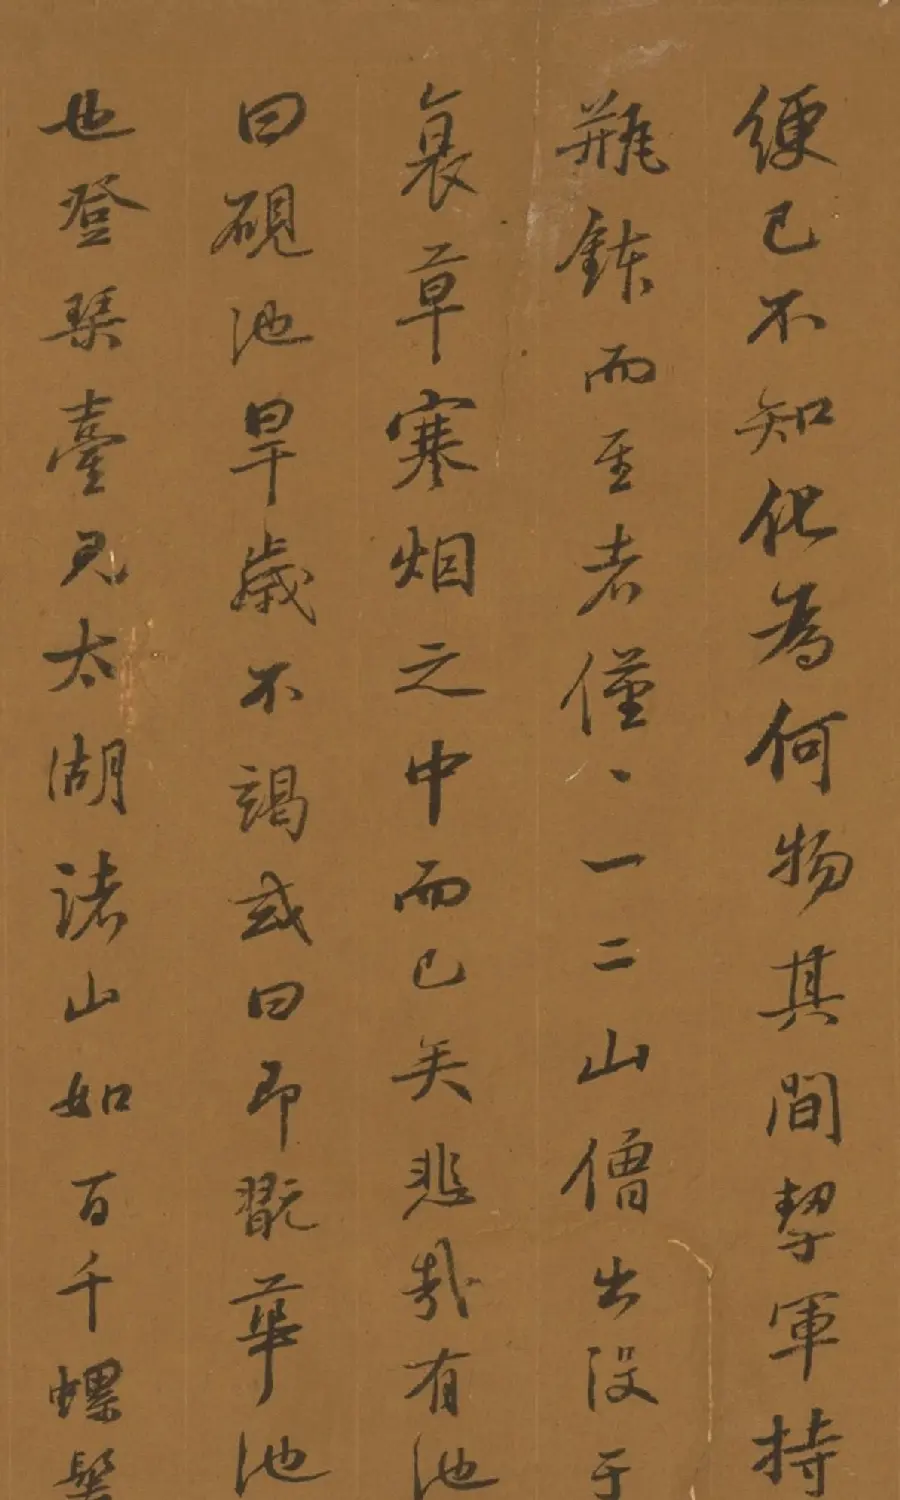 緶已不知化為何物其間挈軍持
瓶鉢而至者僅〻一二山僧出没于
衰草寒烟之中而已矣悲哉有池
曰硯池旱歲不竭或曰即翫華池
也登琴臺見太湖諸山如百千螺髻